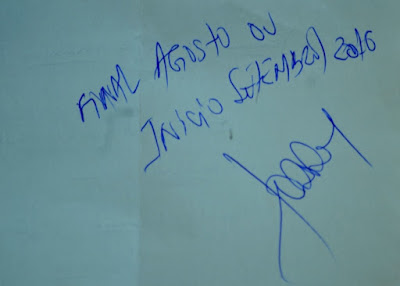 FINAL AGOSTO OU
INICIO SETEMBRO 2016